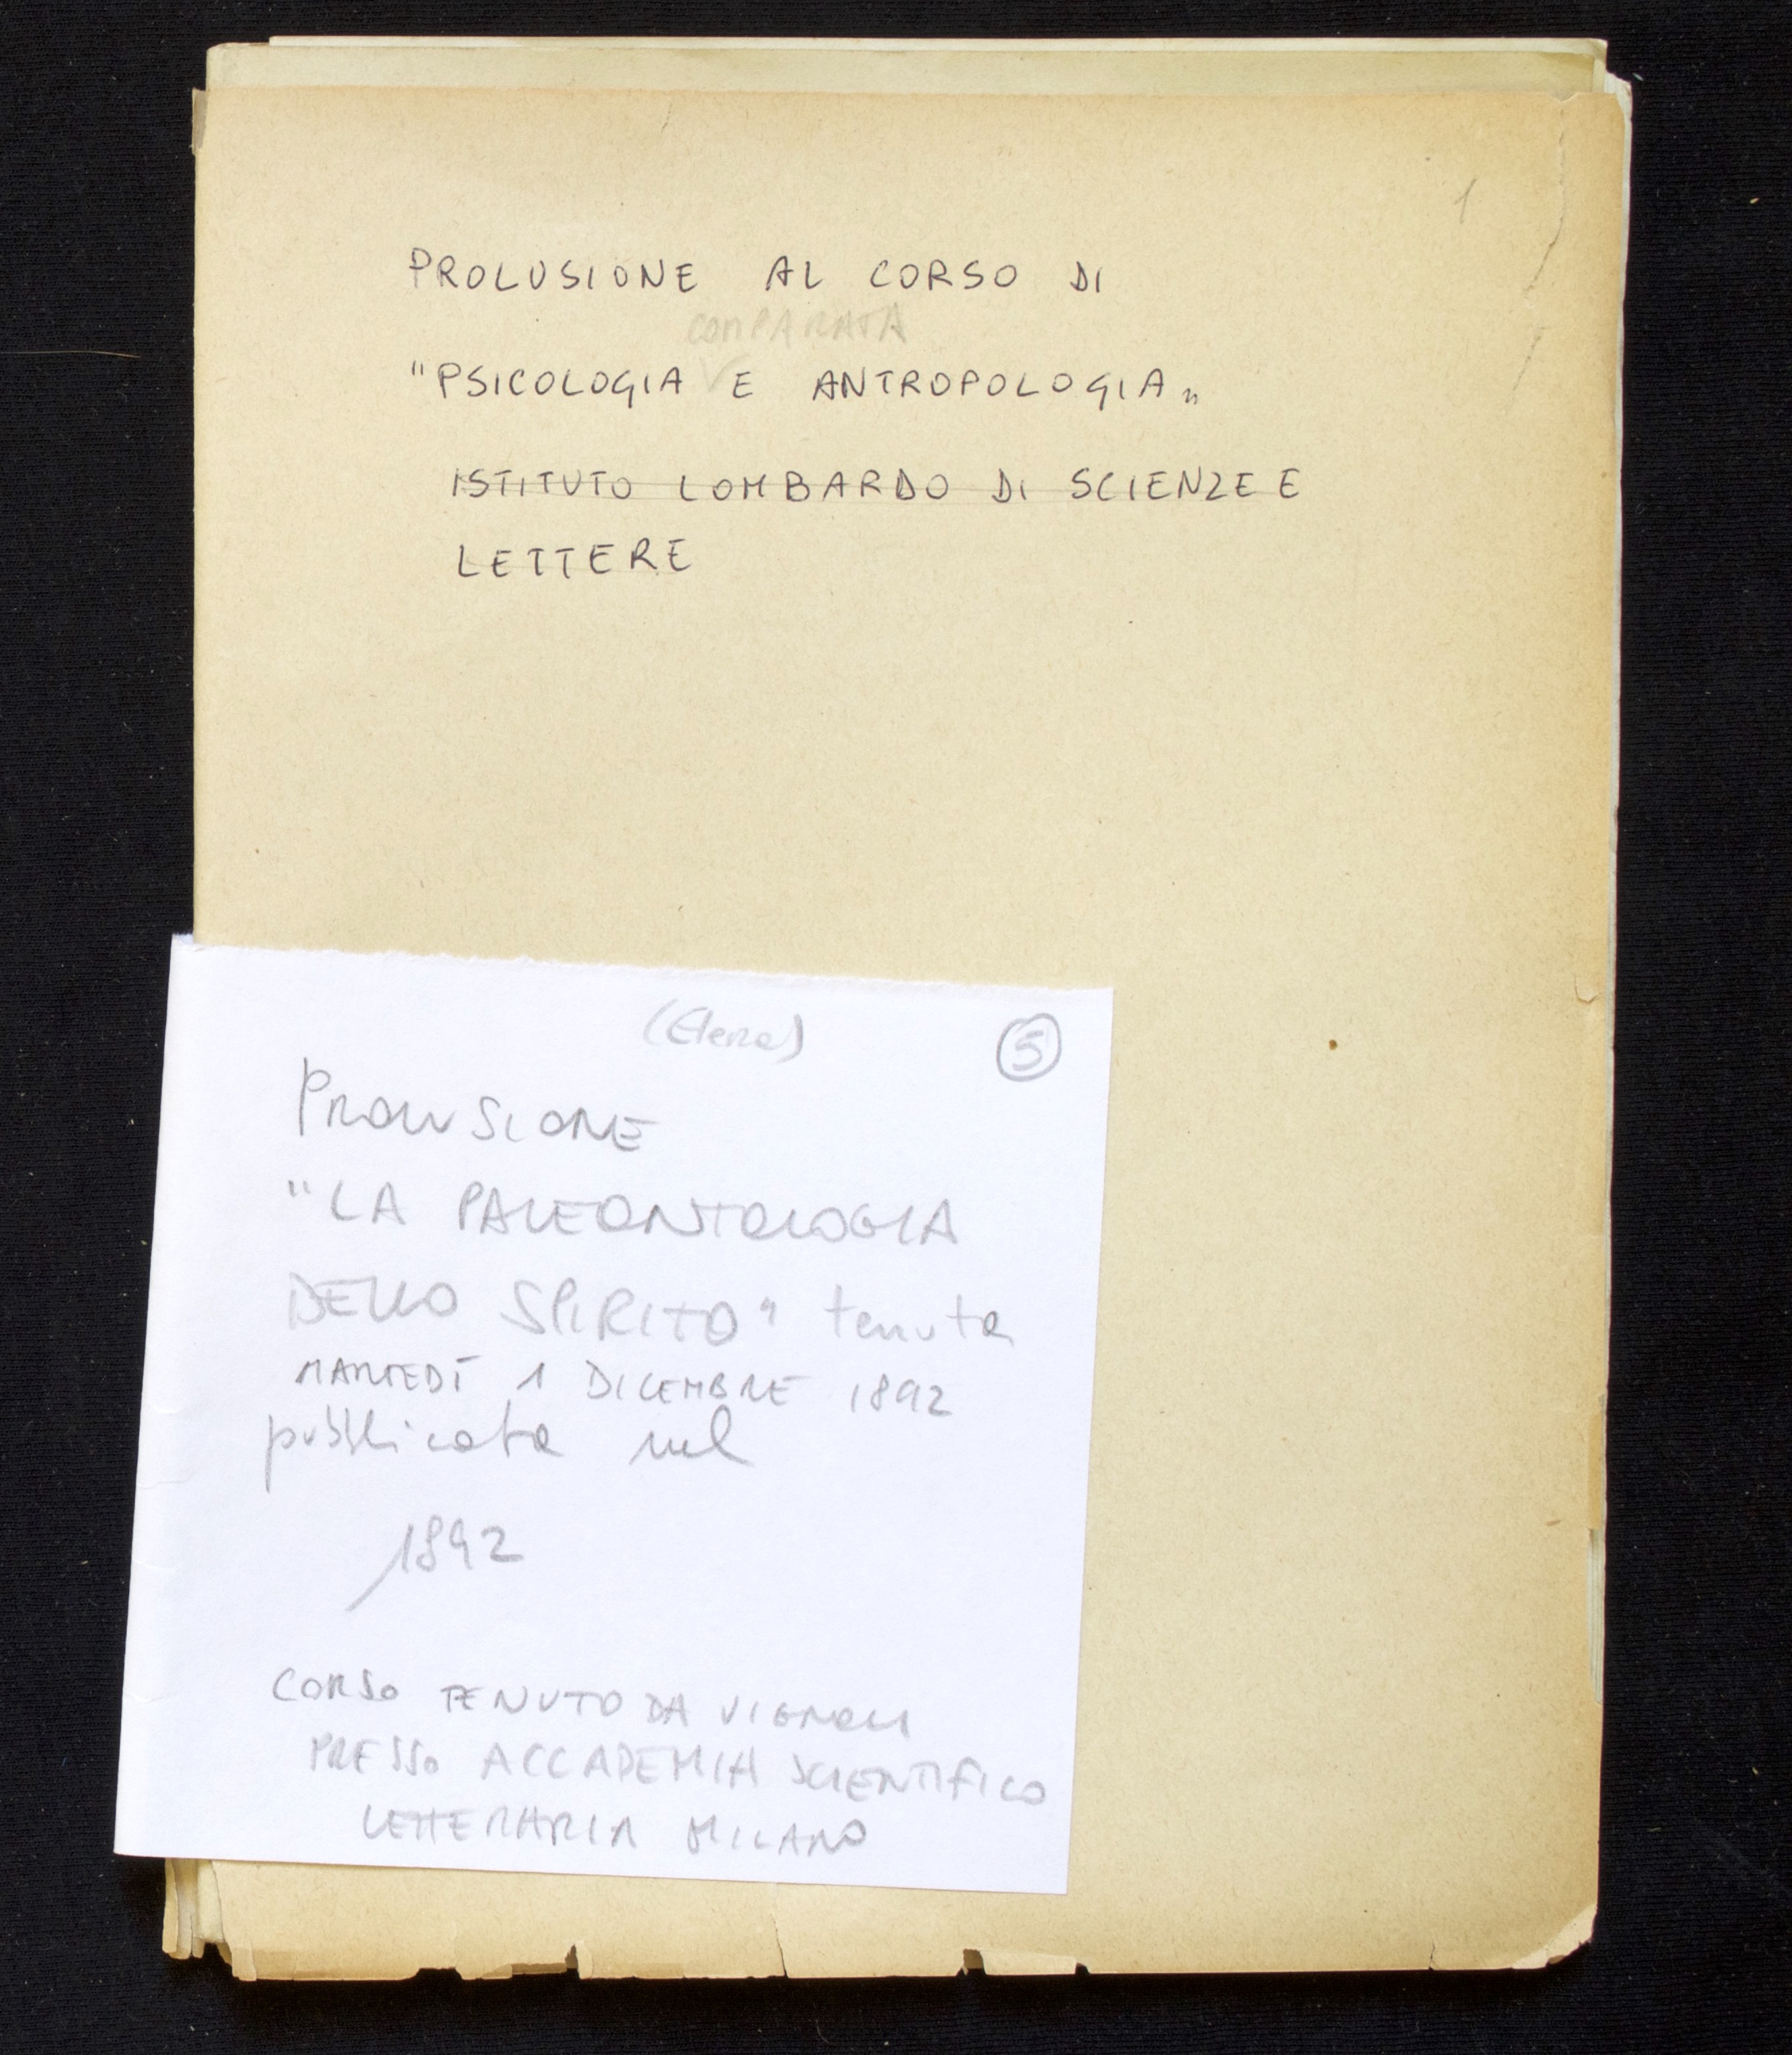 1
PROLUSIONE AL CORSO DI
COMPARATA
"PSICOLOGIA E ANTROPOLOGIA„
ISTITUTO LOMBARDO DI SCIENZE E
LETTERE
(Elena) 5
PROLUSIONE
"LA PALEONTOLOGIA
DELLO SPIRITO" tenuta
MARTEDÌ 1 DICEMBRE 1892
pubblicata nel
1892
CORSO TENUTO DA VIGNOLI
PRESSO ACCADEMIA SCIENTIFICO
LETTERARIA MILANO